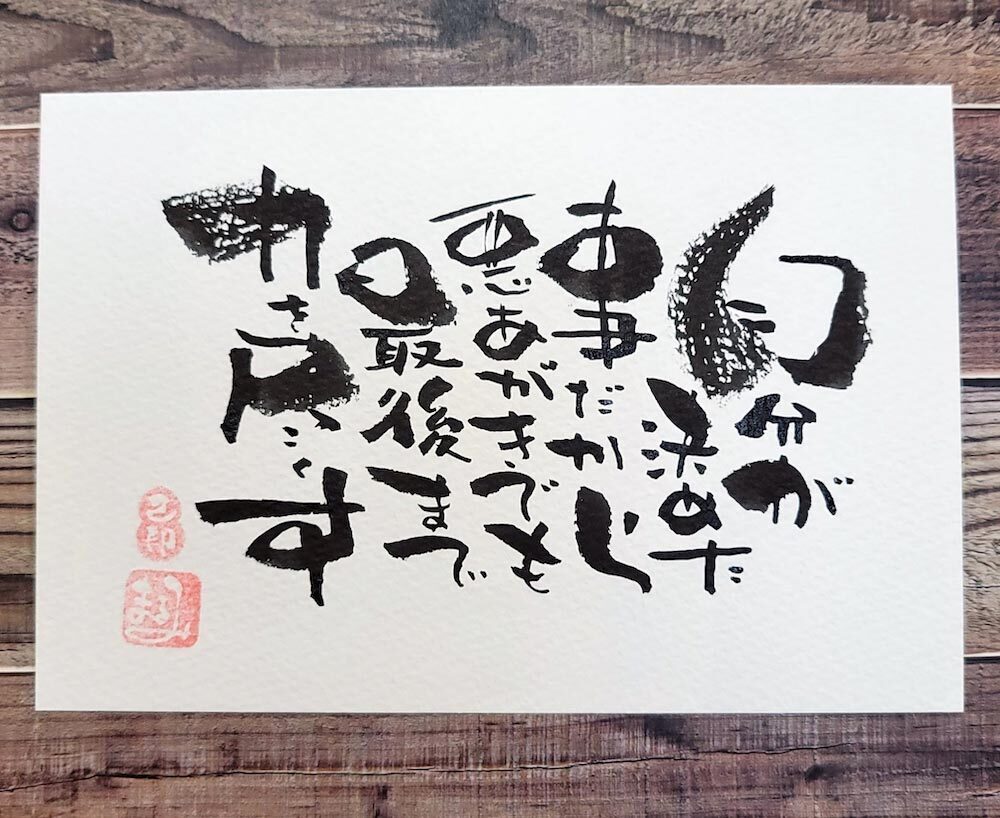 自分が
決めた
事だから
悪あがきでも
最後まで
き尽くす
己印